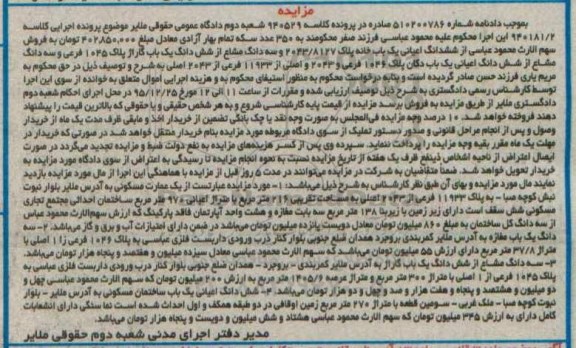 مزایده
بموجب دادنامه شماره ۵۱۰۲۰۰۷۸۶ صادره در پرونده کلاسه ۹۴۰۵۲۹ شعبه دوم دادگاه عمومی حقوقی ملایر موضوع پرونده اجرایی کلاسه
۹۴۰۱۸۱/۲ این اجرا محکوم علیه محمود عباسی فرزند صفر محکومند به ۳۵۰ عدد سکه تمام بهار آزادی معادل مبلغ ۴۰۲,۸۵۰,۰۰۰ تومان به فروش
سهم الارث محمود عباسی از ششدانگ اعیانی یک باب خانه پلاک ۲۰۴۳/۸۱۲۷ و سه دانگ مشاع از شش دانگ یک باب گاراژ پلاک ۱۰۴۵ فرعی و سه دانگ
مشاع از شش دانگ اعیانی یک باب دکان پلاک ۱۰۴۶ فرعی و ۲۰۴۳ و اصلی از ۱۱۹۳۳ فرعی از ۲۰۴۳ اصلی به شرح و توصیف ذیل در حق محکوم به
مریم یاری فرزند حسن صادر گردیده است و بنابه درخواست محکوم به منظور استیفای محکوم به و هزینه اجرایی اموال متعلق به خوانده از سوی این اجرا
توسط کارشناس رسمی دادگستری به شرح ذیل توصیف ارزیابی شده و مقررات از ساعت ۱۱ الی ۱۲ مورخ ۹۵/۱۲/۲۵ در محل اجرای احکام شعبه دوم
دادگستری ملایر از طریق مزایده به فروش برسد مزایده از قیمت پایه کارشناسی شروع و به هر شخص حقیقی و یا حقوقی که بالاترین قیمت را پیشنهاد
دهند فروخته خواهد شد. ۱۰ درصد وجه مزایده فی‌المجلس به صورت وجه نقد یا چک بانکی تضمین از خریدار اخذ و مابقی ظرف مدت یک ماه از خریدار
وصول و پس از انجام مراحل قانونی و صدور دستور تملیک از سوی دادگاه مربوطه مورد مزایده بنام خریدار منتقل خواهد شد در صورتی که خریدار در
مهلت یک ماه مقرر بقیه وجه مزایده را پرداخت ننماید. سپرده وی پس از کسر هزینه‌های مزایده به نفع دولت ضبط و مزایده تجدید می‌گردد در صورت
ایصال اعتراض از ناحیه اشخاص ذینفع ظرف یک هفته از تاریخ مزایده نسبت به نحوه انجام مزایده تا رسیدگی به اعتراض از سوی دادگاه مورد مزایده به
خریدار تحویل نخواهد شد. ضمنا متقاضیان به شرکت در مزایده می‌توانند در مدت ۵ روز قبل از مزایده با هماهنگی این اجرا از مال مورد مزایده بازدید
نمایند مال مورد مزایده و بهای آن طبق نظر کارشناس به شرح ذیل می‌باشد: ۱- مورد مزایده عبارتست از یک عمارت مسکونی به آدرس ملایر بلوار نبوت
نبش کوچه صبا - به پلاک ۱۱۹۳۳ فرعی از ۲۰۴۳ اصلی به مساحت تقریبی ۲۱۶ متر مربع با متراژ اعیانی ۹۷۰ متر مربع ساختمان احداثی مجتمع تجاری
مسکونی شش سقف است دارای زیر زمین با زیربنا ۱۳۸ متر مربع سه بابت مغازه و هشت واحد آپارتمان فاقد پارکینگ که ارزش سهم‌الارث محمود عباسی
از سه دانگ کل ساختمان به مبلغ ۸۶۰ میلیون تومان معادل دویست پانزده میلیون تومان می‌باشد در ضمن دارای امتیازات آب و برق و گاز می‌باشد. ۲- سه
دانگ یک باب مغازه به آدرس ملایر کمربندی بروجرد همدان ضلع جنوبی بلوار کنار درب ورودی داربست فلزی عباسی به پلاک ۱۰۴۶ فرعی از ۱ اصلی با
متراژ ۳۷/۸ متر مربع دارای ارزش ۵۵ میلیون تومان می‌باشد که سهم الارث محمود عباسی معادل سیزده میلیون و هفتصد و پنجاه هزار تومان می‌باشد.
۳- سه دانگ مشاع از شش دانگ یک باب گاراژ به آدرس ملایر کمربندی - بروجرد - همدان ضلع جنوبی بلوار کنار درب ورودی داربست فلزی عباسی به
پلاک ۱۰۴۵ فرعی از ۱ اصلی با متراژ ۳۰۰ متر مربع و متراژ عرصه ۱۳۴۵/۶ متر مربع به ارزش ۲۰۰ میلیون تومان که سهم الارث محمود عباسی چهل و
دو میلیون و هشتصد و پنجاه و هفت هزار و صد و چهل و دو هزار تومان می‌باشد. ۴- شش دانگ اعیانی یک باب ساختمان مسکونی به آدرس ملایر - بلوار
نبوت کوچه صبا - ملک غربی - سومین قطعه با متراژ ۲۷۰ متر مربع زمین اوقافی در دو طبقه همکف و اول احداث شده است نما سنگی دارای انشعابات
کامل دارای به ارزش ۳۴۵ میلیون تومان که سهم الارث محمود عباسی هشتاد و شش میلیون و دویست و پنجاه هزار تومان می‌باشد.
مدیر دفتر اجرای مدنی شعبه دوم حقوقی ملایر